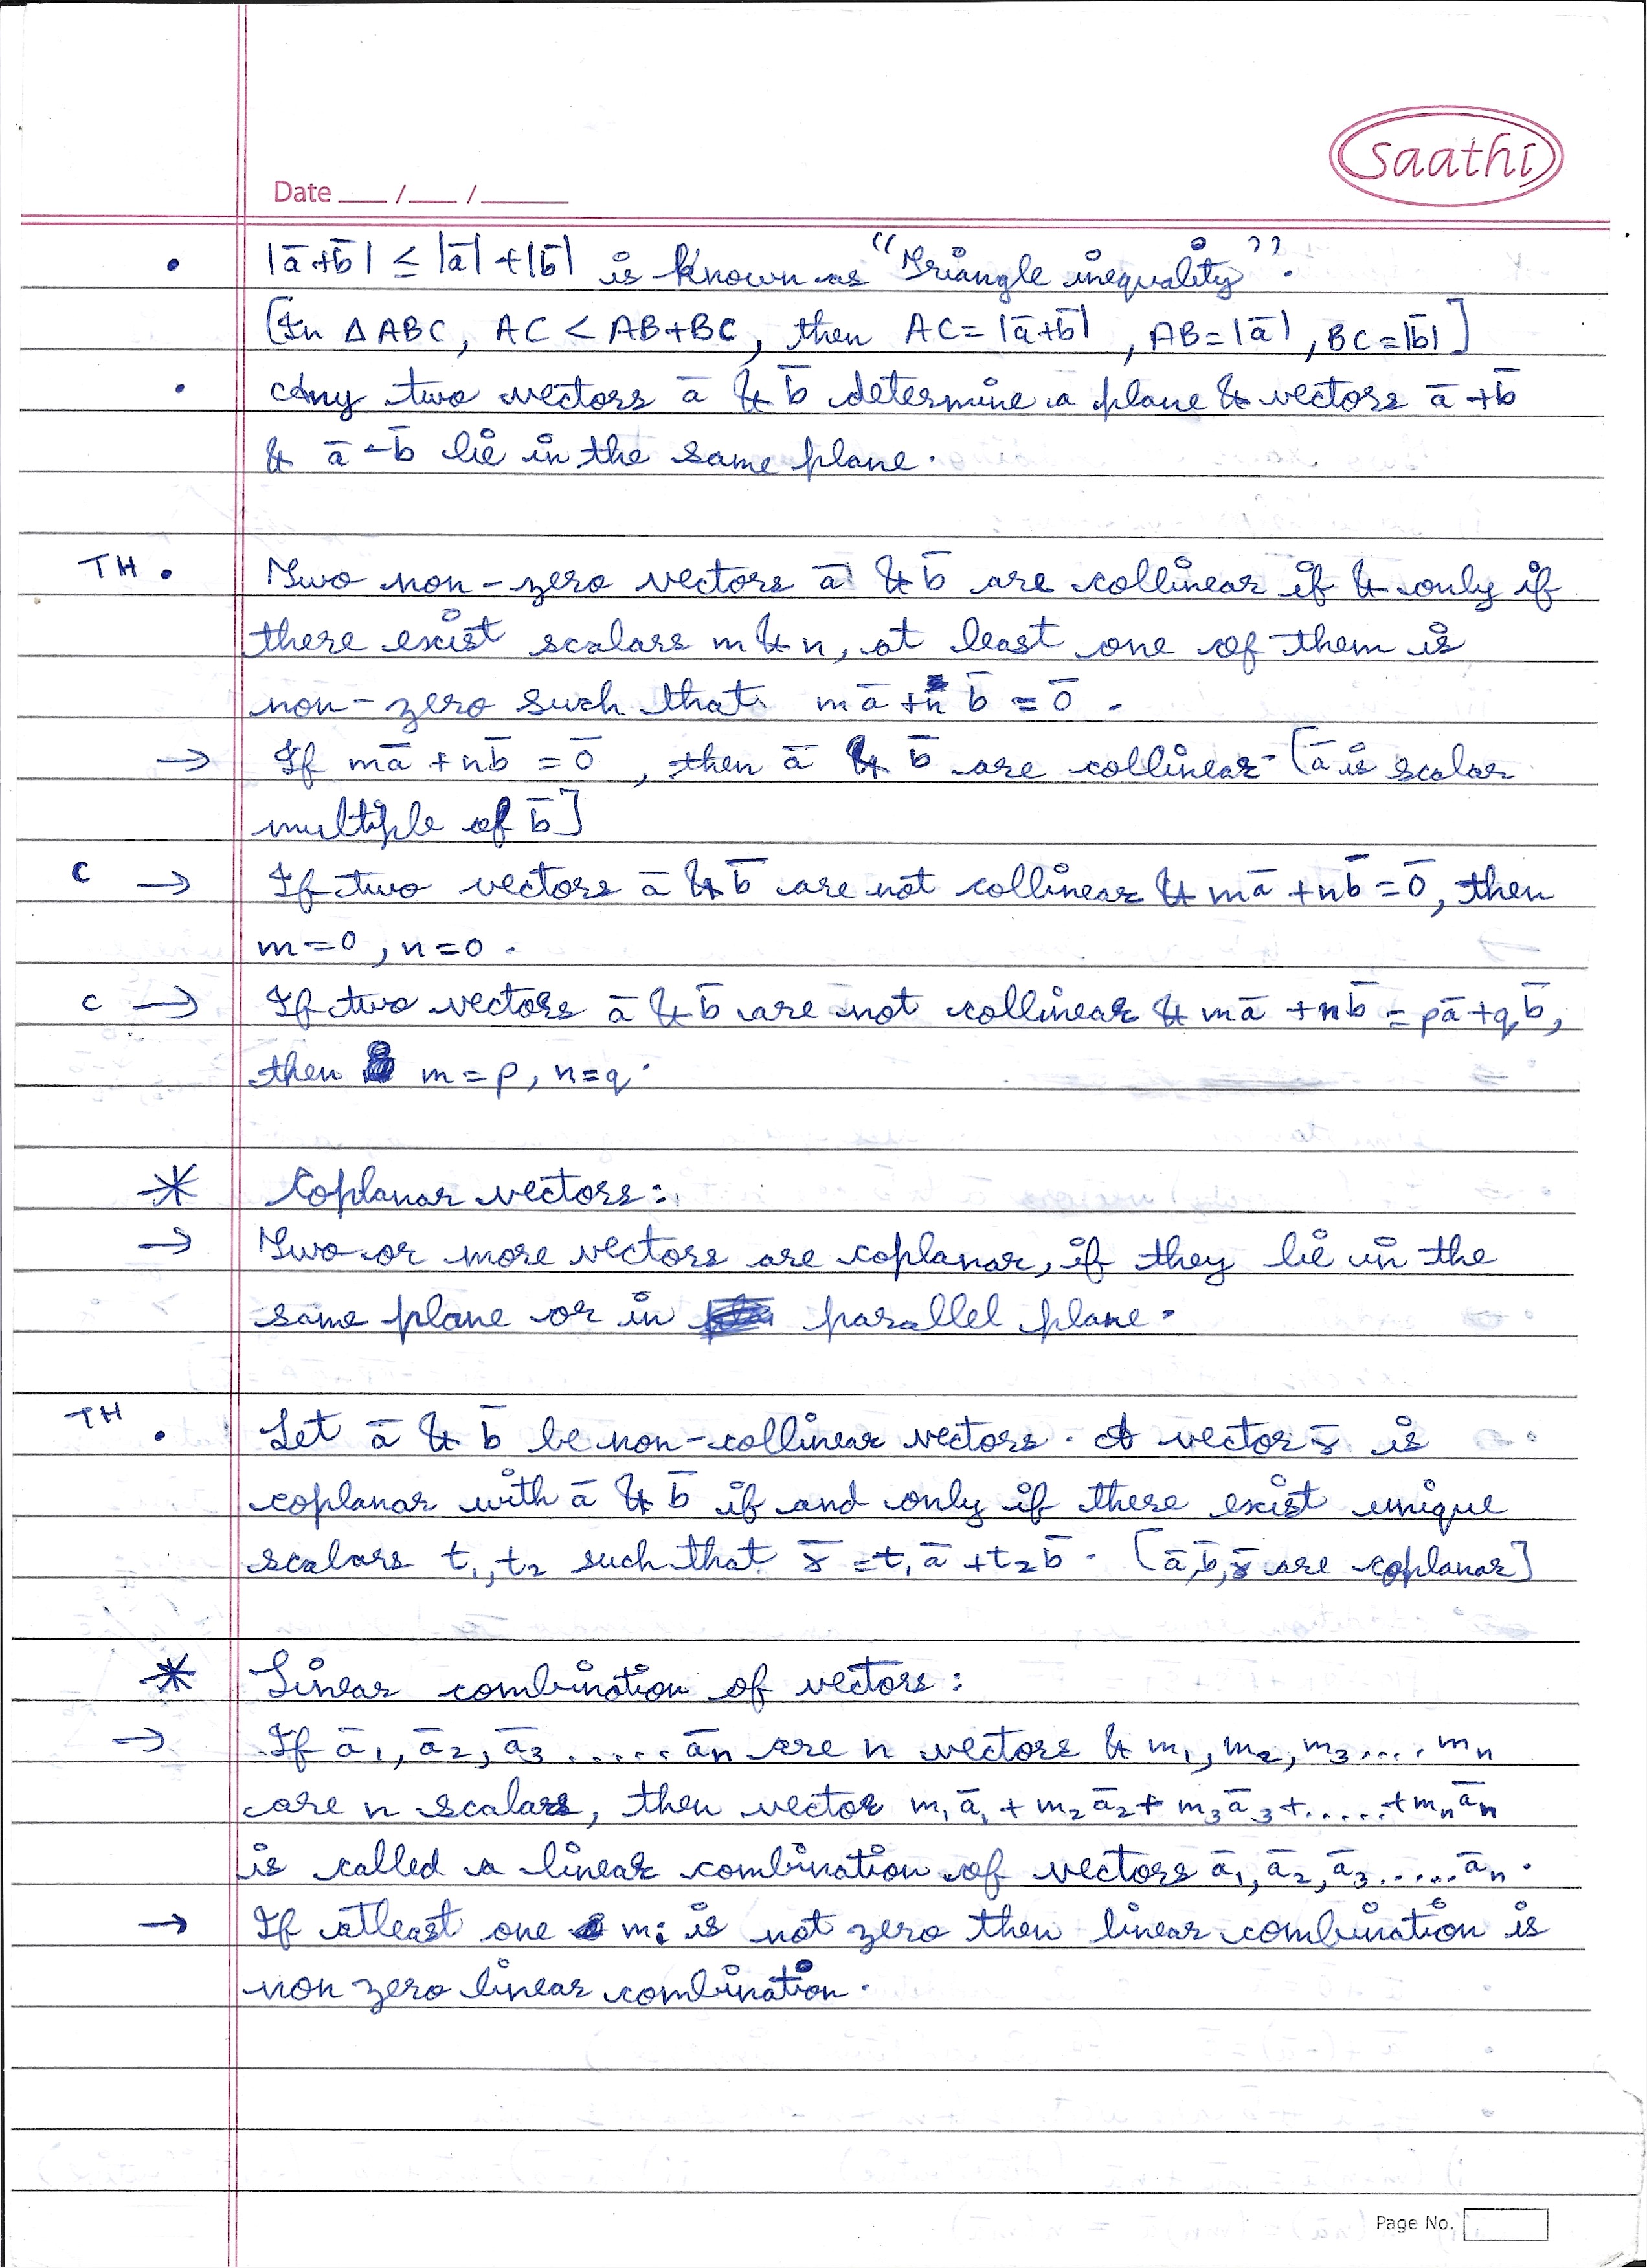 saathi
Date ___ /___ /______
• |a̅+b̅| ≤ |a̅|+|b̅| is known as "Triangle inequality".
[In △ABC, AC < AB+BC, then AC=|a̅+b̅|, AB=|a̅|, BC=|b̅|]
• Any two vectors a̅ & b̅ determine a plane & vectors a̅+b̅
& a̅-b̅ lie in the same plane.
TH • Two non-zero vectors a̅ & b̅ are collinear if & only if
there exist scalars m & n, at least one of them is
non-zero such that ma̅+nb̅=0̅.
→ If ma̅+nb̅=0̅, then a̅ & b̅ are collinear-[a̅ is scalar
multiple of b̅]
C → If two vectors a̅ & b̅ are not collinear & ma̅+nb̅=0̅, then
m=0, n=0.
C → If two vectors a̅ & b̅ are not collinear & ma̅+nb̅=pa̅+qb̅,
then m=p, n=q.
* Coplanar vectors:
→ Two or more vectors are coplanar, if they lie in the
same plane or in parallel plane.
TH • Let a̅ & b̅ be non-collinear vectors. A vector r̅ is
coplanar with a̅ & b̅ if and only if there exist unique
scalars t₁, t₂ such that r̅=t₁a̅+t₂b̅. [a̅,b̅,r̅ are coplanar]
* Linear combination of vectors:
→ If a̅₁, a̅₂, a̅₃.....a̅n are n vectors & m₁, m₂, m₃....mn
are n scalars, then vector m₁a̅₁+m₂a̅₂+m₃a̅₃+.....+mna̅n
is called a linear combination of vectors a̅₁, a̅₂, a̅₃.....a̅n.
→ If atleast one mi is not zero then linear combination is
non zero linear combination.
Page No.